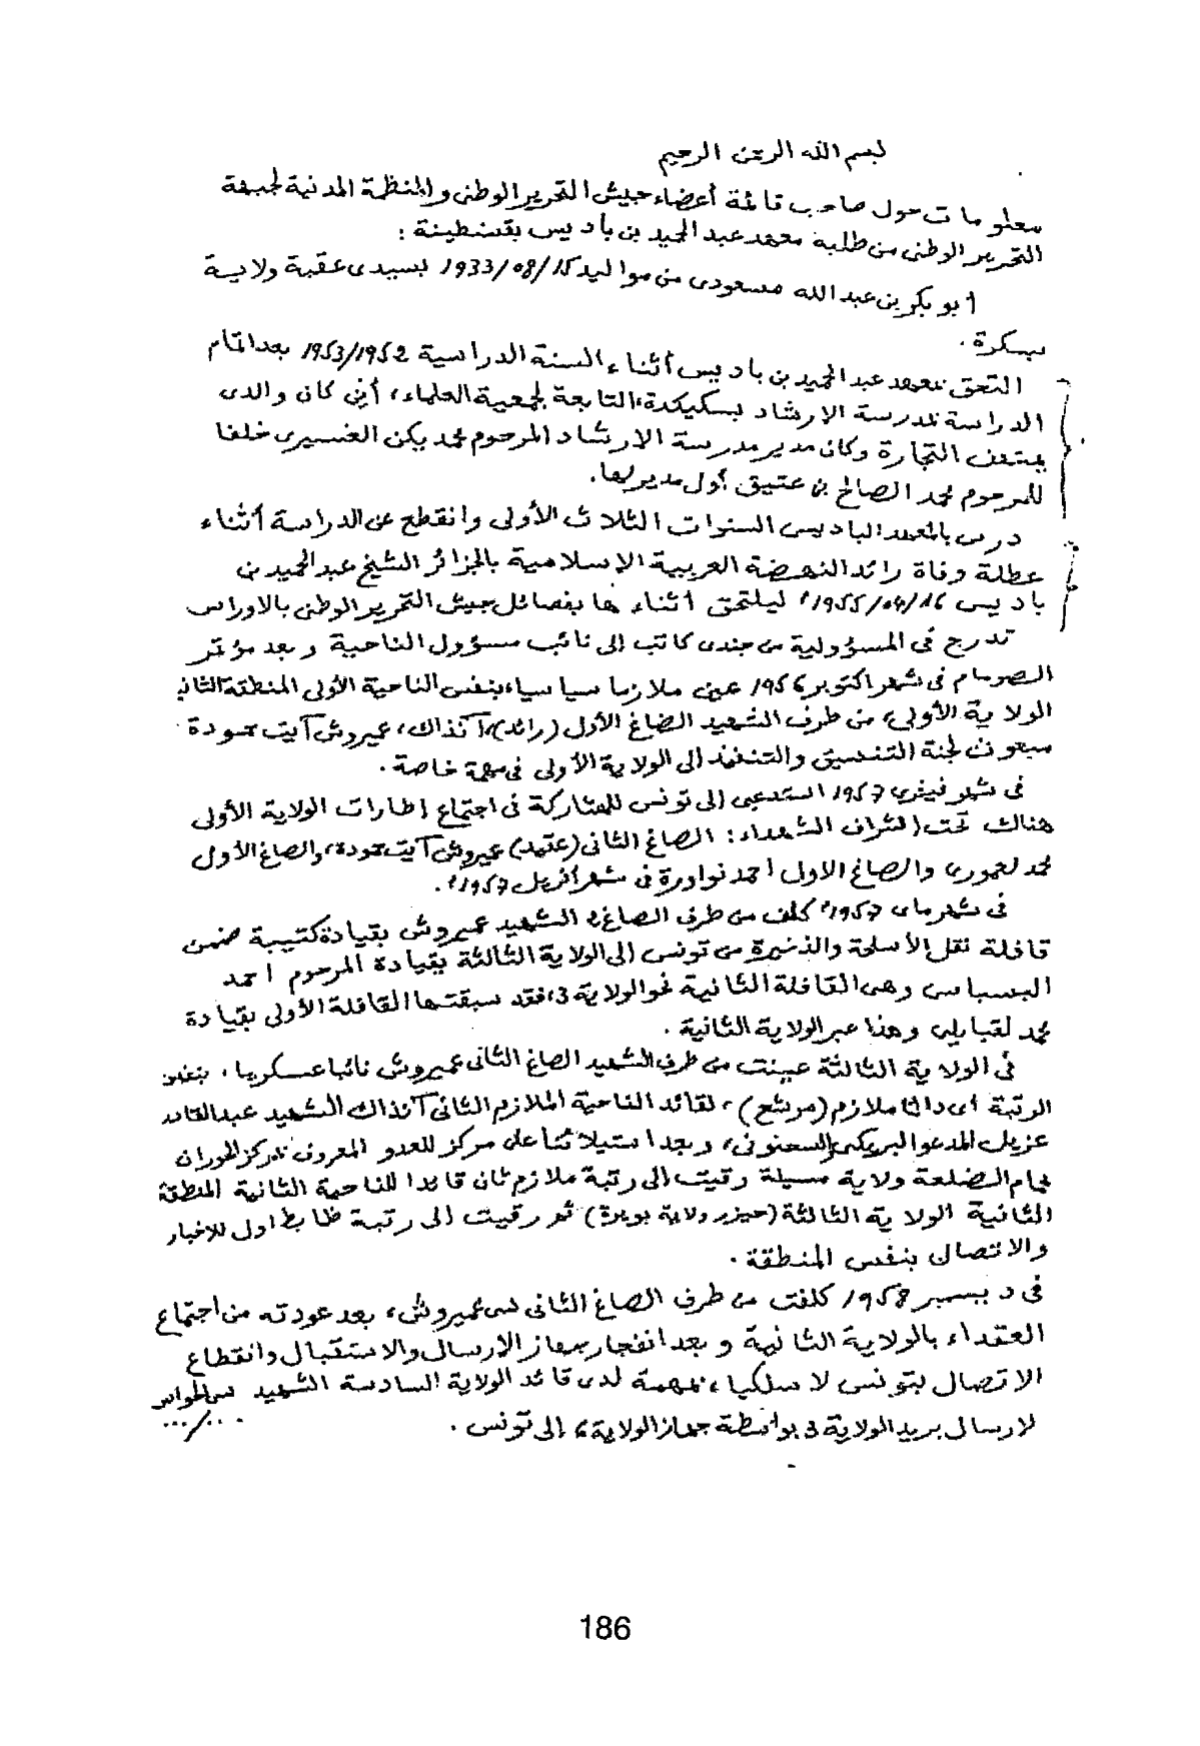 بسم الله الرحمن الرحيم
معلومات حول صاحب قائمة أعضاء جيش التحرير الوطني والمنظمة المدنية لجبهة
التحرير الوطني من طلبة معهد عبد الحميد بن باديس بقسنطينة :
أبو بكر بن عبد الله مسعودي من مواليد 15/08/1933 بسيدي عقبة ولاية
بسكرة .
التحق بمعهد عبد الحميد بن باديس أثناء السنة الدراسية 1952/1953 بعد اتمام
الدراسة بمدرسة الإرشاد بسكيكدة، التابعة لجمعية العلماء، أين كان والدي
يمتهن التجارة وكان مدير مدرسة الارشاد المرحوم محمد يكن الغسيري خلفا
للمرحوم محمد الصالح بن عتيق أول مدير لها.
درس بالمعهد الباديسي السنوات الثلاث الأولى وانقطع عن الدراسة أثناء
عطلة وفاة رائد النهضة العربية الإسلامية بالجزائر الشيخ عبد الحميد بن
باديس 16/04/1955 ليلتحق اثناء ها بفصائل جيش التحرير الوطني بالاوراس
تدرج في المسؤولية من جندي كاتب إلى نائب مسؤول الناحية وبعد مؤتمر
الصومام في شهر اكتوبر 1956 عين ملازما سياسيا، بنفس الناحية الأولى المنطقة الثانية
الولاية الأولى، من طرف الشهيد الصاغ الأول (رائد)، آنذاك، عميروش آيت حمودة
مبعوث لجنة التنسيق والتنفيذ الى الولاية الأولى في مهمة خاصة .
في شهر فيفري 1957 استدعي إلى تونس للمشاركة في اجتماع إطارات الولاية الأولى
هناك تحت إشراف الشهداء : الصاغ الثاني (عقيد) عميروش آيت حمودة، والصاغ الأول
محمد لعموري والصاغ الاول احمد نواورة في شهر أفريل 1957.
في شهر ماي 1957 كلف من طرف الصاغ 2 الشهيد عميروش بقيادة كتيبة ضمن
قافلة نقل الأسلحة والذخيرة من تونس إلى الولاية الثالثة بقيادة المرحوم احمد
البسباسي وهي القافلة الثانية نحو الولاية 3، فقد سبقتها القافلة الأولى بقيادة
محمد لقبايلي وهذا عبر الولاية الثانية .
في الولاية الثالثة عينت من طرف الشهيد الصاغ الثاني عميروش نائبا عسكريا، بنفس
الرتبة أي دائما ملازم (مرشح)، لقائد الناحية الملازم الثاني آنذاك الشهيد عبد القادر
عزيل المدعو البريكي السحنوني، وبعد استيلائنا على مركز للعدو المعروف بمركز الحوران
بحمام الضلعة ولاية مسيلة رقيت إلى رتبة ملازم ثان قائدا للناحية الثانية المنطقة
الثانية الولاية الثالثة (حيزر ولاية بويرة) ثم رقيت إلى رتبة ضابط اول للاخبار
والاتصال بنفس المنطقة .
في ديسمبر 1958 كلفت من طرف الصاغ الثاني سي عميروش، بعد عودته من اجتماع
العقداء بالولاية الثانية وبعد انفجار جهاز الارسال والاستقبال وانقطاع
الاتصال بتونس لا سلكيا، بمهمة لدى قائد الولاية السادسة الشهيد سي الحواس
لارسال بريد الولاية 3 بواسطة جهاز الولاية 6 إلى تونس .
.../...
186